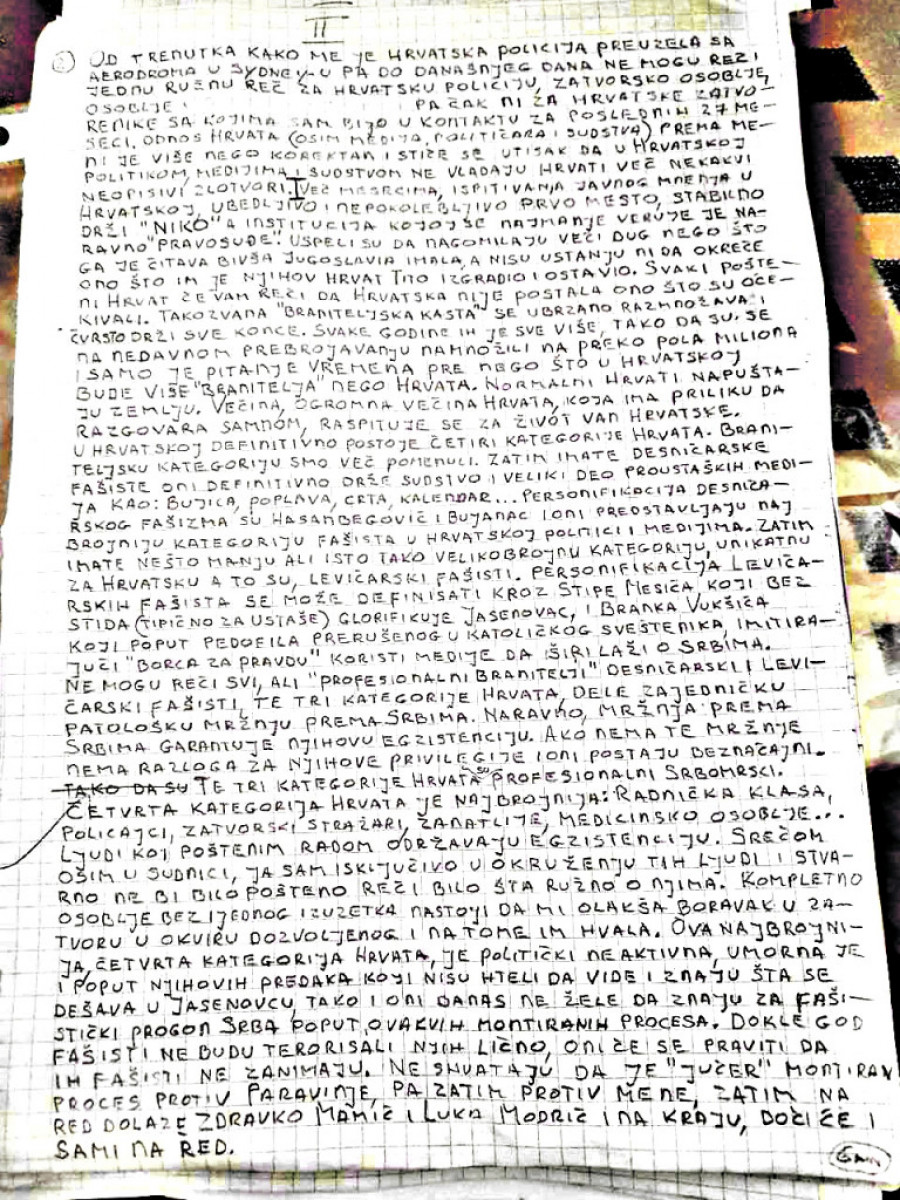 II
2) OD TRENUTKA KAKO ME JE HRVATSKA POLICIJA PREUZELA SA
AERODROMA U SYDNEY-U PA DO DANAŠNJEG DANA NE MOGU REČI
JEDNU RUŽNU REČ ZA HRVATSKU POLICIJU, ZATVORSKO OSOBLJE,
OSOBLJE I PA ČAK NI ZA HRVATSKE ZATVO-
RENIKE SA KOJIMA SAM BIJO U KONTAKTU ZA POSLEDNJIH 27 ME-
SECI. ODNOS HRVATA (OSIM MEDIJA, POLITIČARA I SUDSTVA) PREMA ME-
NI JE VIŠE NEGO KOREKTAN I STIČE SE UTISAK DA U HRVATSKOJ
POLITIKOM, MEDIJIMA I SUDSTVOM NE VLADAJU HRVATI VEČ NEKAKVI
NEOPISIVI ZLOTVORI. VEČ MESECIMA, ISPITIVANJA JAVNOG MNENJA U
HRVATSKOJ, UBEDLJIVO I NEPOKOLEBLJIVO PRVO MESTO, STABILNO
DRŽI "NIKO" A INSTITUCIJA KOJOJ SE NAJMANJE VERUJE JE NA-
RAVNO "PRAVOSUĐE". USPELI SU DA NAGOMILAJU VEČI DUG NEGO ŠTO
GA JE ČITAVA BIVŠA JUGOSLAVIA IMALA, A NISU USTANJU NI DA OKREČE
ONO ŠTO IM JE NJIHOV HRVAT TITO IZGRADIO I OSTAVIO. SVAKI POŠTE-
NI HRVAT ČE VAM REČI DA HRVATSKA NIJE POSTALA ONO ŠTO SU OČE-
KIVALI. TAKOZVANA "BRANITELJSKA KASTA" SE UBRZANO RAZMNOŽAVA I
ČVRSTO DRŽI SVE KONCE. SVAKE GODINE IH JE SVE VIŠE, TAKO DA SU SE
NA NEDAVNOM PREBROJAVANJU NAMNOŽILI NA PREKO POLA MILIONA
I SAMO JE PITANJE VREMENA PRE NEGO ŠTO U HRVATSKOJ
BUDE VIŠE "BRANITELJA" NEGO HRVATA. NORMALNI HRVATI NAPUŠTA-
JU ZEMLJU. VEČINA, OGROMNA VEČINA HRVATA, KOJA IMA PRILIKU DA
RAZGOVARA SAMNOM, RASPITUJE SE ZA ŽIVOT VAN HRVATSKE.
U HRVATSKOJ DEFINITIVNO POSTOJE ČETIRI KATEGORIJE HRVATA. BRANI-
TELJSKU KATEGORIJU SMO VEČ POMENULI. ZATIM IMATE DESNIČARSKE
FAŠISTE ONI DEFINITIVNO DRŽE SUDSTVO I VELIKI DEO PROUSTAŠKIH MEDI-
JA KAO: BUJICA, POPLAVA, CRTA, KALENDAR... PERSONIFIKACIJA DESNIČA-
RSKOG FAŠIZMA SU HASANBEGOVIČ I BUJANAC I ONI PREDSTAVLJAJU NAJ
BROJNIJU KATEGORIJU FAŠISTA U HRVATSKOJ POLITICI I MEDIJIMA. ZATIM
IMATE NEŠTO MANJU ALI ISTO TAKO VELIKOBROJNU KATEGORIJU, UNIKATNU
ZA HRVATSKU A TO SU, LEVIČARSKI FAŠISTI. PERSONIFIKACIJA LEVIČA-
RSKIH FAŠISTA SE MOŽE DEFINISATI KROZ STIPE MESIČA, KOJI BEZ
STIDA (TIPIČNO ZA USTAŠE) GLORIFIKUJE JASENOVAC, I BRANKA VUKŠIČA
KOJI POPUT PEDOFILA PRERUŠENOG U KATOLIČKOG SVEŠTENIKA, IMITIRA-
JUČI "BORCA ZA PRAVDU" KORISTI MEDIJE DA ŠIRI LAŽI O SRBIMA.
NE MOGU REČI SVI, ALI "PROFESIONALNI BRANITELJI" DESNIČARSKI I LEVI-
ČARSKI FAŠISTI, TE TRI KATEGORIJE HRVATA, DELE ZAJEDNIČKU
PATOLOŠKU MRŽNJU PREMA SRBIMA. NARAVNO, MRŽNJA PREMA
SRBIMA GARANTUJE NJIHOVU EGZISTENCIJU. AKO NEMA TE MRŽNJE
NEMA RAZLOGA ZA NJIHOVE PRIVILEGIJE I ONI POSTAJU BEZNAČAJNI.
TAKO DA SU TE TRI KATEGORIJE HRVATA SU PROFESIONALNI SRBOMRSCI.
ČETVRTA KATEGORIJA HRVATA JE NAJBROJNIJA: RADNIČKA KLASA,
POLICAJCI, ZATVORSKI STRAŽARI, ZANATLIJE, MEDICINSKO OSOBLJE...
LJUDI KOJ POŠTENIM RADOM ODRŽAVAJU EGZISTENCIJU. SREČOM
OSIM U SUDNICI, JA SAM ISKLJUČIVO U OKRUŽENJU TIH LJUDI I STVA-
RNO NE BI BILO POŠTENO REČI BILO ŠTA RUŽNO O NJIMA. KOMPLETNO
OSOBLJE BEZ IJEDNOG IZUZETKA NASTOJI DA MI OLAKŠA BORAVAK U ZA-
TVORU U OKVIRU DOZVOLJENOG I NA TOME IM HVALA. OVA NAJBROJNI-
JA, ČETVRTA KATEGORIJA HRVATA, JE POLITIČKI NEAKTIVNA, UMORNA JE
I POPUT NJIHOVIH PREDAKA KOJI NISU HTELI DA VIDE I ZNAJU ŠTA SE
DEŠAVA U JASENOVCU, TAKO I ONI DANAS NE ŽELE DA ZNAJU ZA FAŠI-
STIČKI PROGON SRBA POPUT, OVAKVIH MONTIRANIH PROCESA. DOKLE GOD
FAŠISTI NE BUDU TERORISALI NJIH LIČNO, ONI ČE SE PRAVITI DA
IH FAŠISTI NE ZANIMAJU. NE SHVATAJU DA JE "JUČER" MONTIRAN
PROCES PROTIV PARAVINJE, PA ZATIM PROTIV MENE, ZATIM NA
RED DOLAZE ZDRAVKO MAMIČ I LUKA MODRIČ I NA KRAJU, DOČI ČE I
SAMI NA RED.